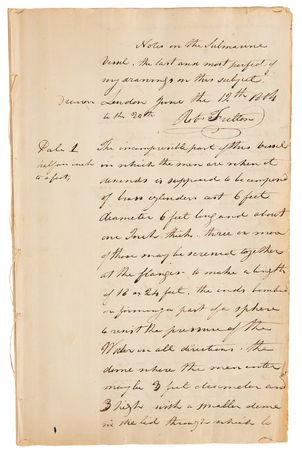 Notes on the Submarine
Vessel, the last and most perfect of
my drawings on this subject
Drawn London June the 12th 1804
to the 20th Robt Fulton
Dale 1
half an inch
to a foot,
The incompressible part of this Vessel
in which the men are when it
descends is supposed to be composed
of brass cylenders cast 6 feet
diameter 6 feet long and about
one Inch thick. three or more
of them may be screwed together
at the flanges to make a length
of 18 or 24 feet. the ends
or forming a part of a sphere
to resist the pressure of the
Water in all directions. the
dome where the men enter
may be 3 feet diameter and
3 high with a smaller dome
in the lid through which to